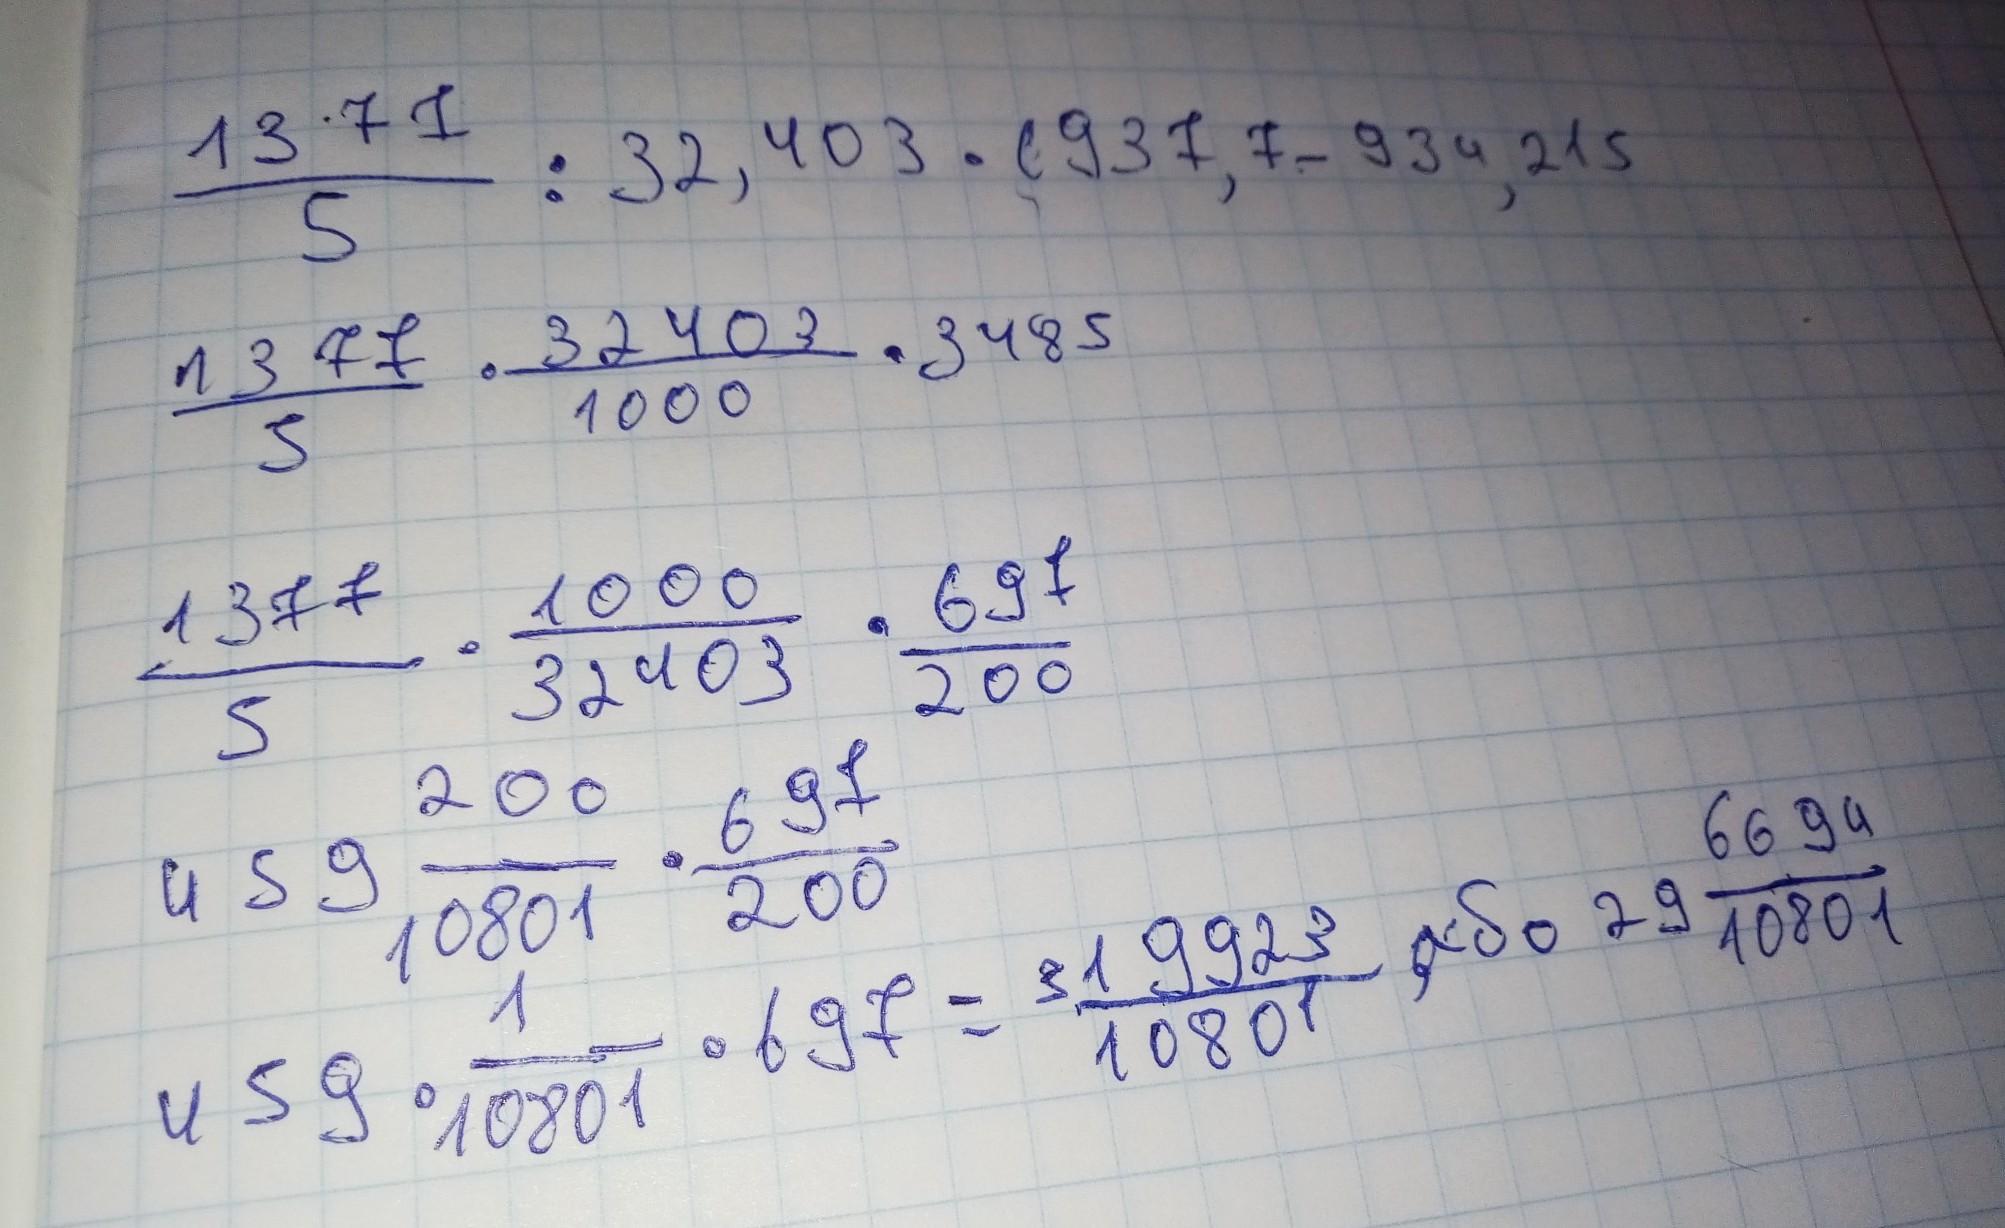 1377/5 : 32,403 · (937,7 - 934,215
1377/5 · 32403/1000 · 3485
1377/5 · 1000/32403 · 697/200
459 200/10801 · 697/200
459 · 1/10801 · 697 = 319923/10801 або 29 6694/10801